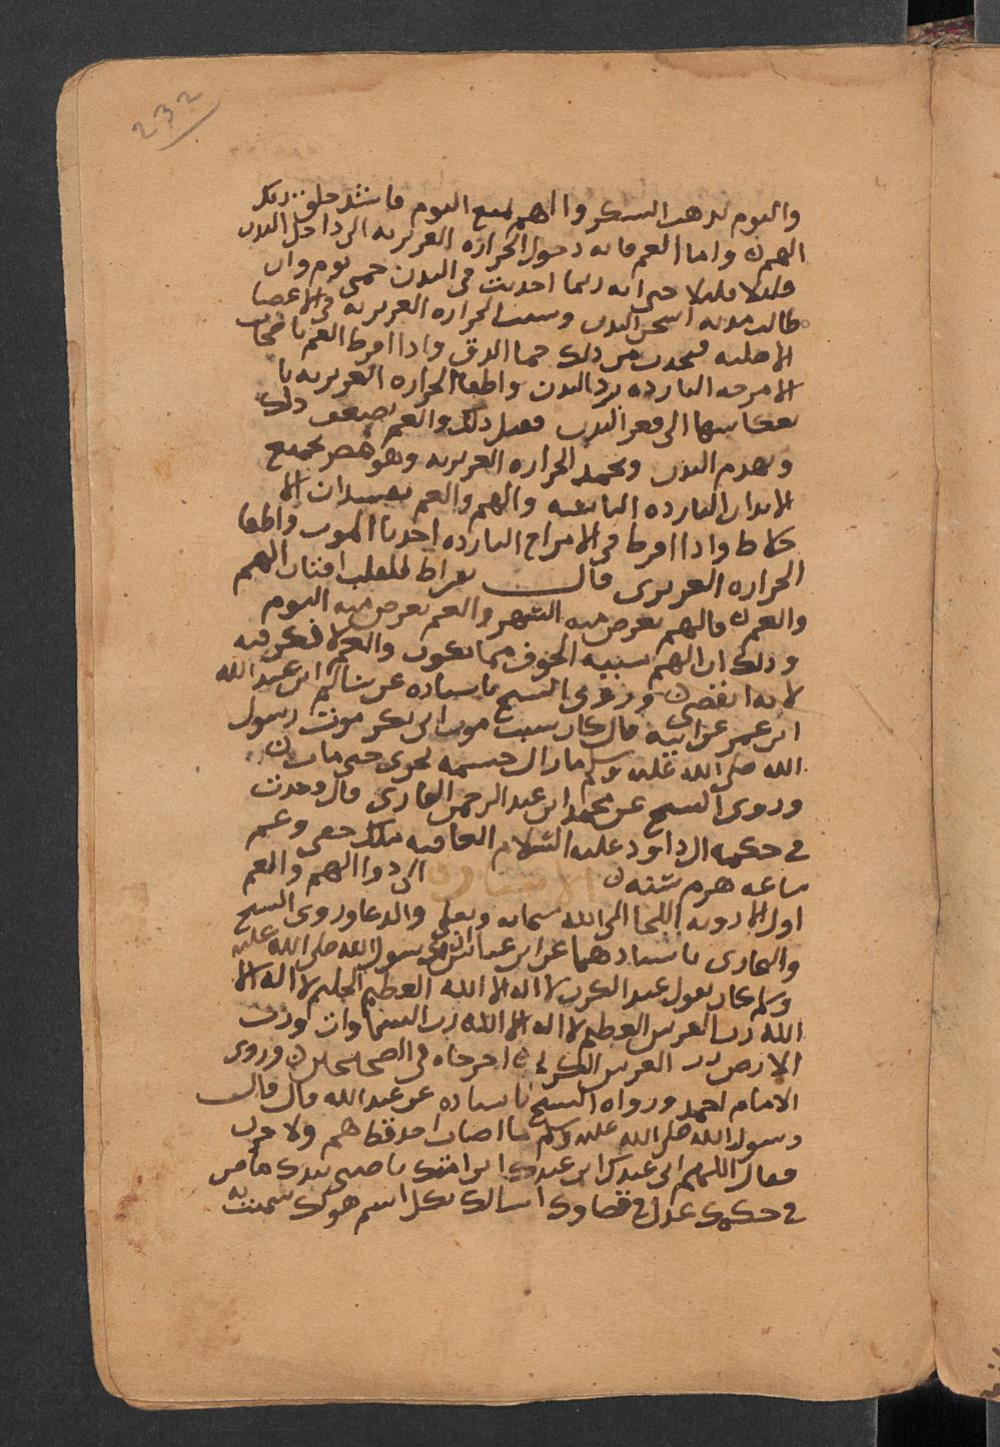 232
والنوم يذهب السكر والهم يمنع النوم فاشد خلق ربك
الهم واما الغم فانه دخول الحراره الغريزيه الى داخل البدن
قليلا قليلا حتى انه ربما احدث في البدن حمى يوم وان
طالت مدته اسخن البدن وسبب الحراره الغريزيه في الاعضا
الاصليه فيحدث من ذلك حما الدق واذا افرط الغم باصحاب
الامزجه البارده برد البدن واطفا الحراره الغريزيه با
نعكاسها الى قعر البدن فقبل ذلك والغم يضعف ذلك
ويهدم البدن ويخمد الحراره الغريزيه وهو مضر بجميع
الابدان البارده اليابسه والهم والغم يفسدان الا
خلاط واذا افرط في الامزاج البارده احدثا الموت واطفا
الحراره الغريزى قال بقراط للقلب افتان الهم
والغم فالهم يعرض منه السهر والغم يعرض منه النوم
وذلك ان الهم سببه الخوف مما يكون والغم لا فكر فيه
لانه انقضى وروى الشيخ باسناده عن سالم ابن عبد الله
ابن عمر عن ابيه قال كان سبب موت ابى بكر موت رسول
الله صلى الله عليه وسلم مازال جسمه يجرى حتى مات
وروى الشيخ عن محمد ابن عبد الرحمن القارى قال وجدت
في حكمه ال داود عليه السلام العافيه ملك خفى وغم
ساعه هرم سنه دوا الهم والغم
اول الادويه اللجا الى الله سبحانه وتعلى والدعا وروى الشيخ
والبخارى باسنادهما عن ابن عباس ان رسول الله صلى الله عليه
وسلم كان يقول عند الكرب لا اله الا الله العظيم الحليم لا اله الا
الله رب العرش العظيم لا اله الا الله رب السماوات ورب
الارض رب العرش الكريم اخرجاه في الصحيحين وروى
الامام احمد ورواه الشيخ باسناده عن عبد الله قال قال
رسول الله صلى الله عليه وسلم ما اصاب احد قط هم ولا حزن
فقال اللهم انى عبدك ابن عبدك ابن امتك ناصيتى بيدك ماض
في حكمك عدل في قضاوك اسالك بكل اسم هو لك سميت به